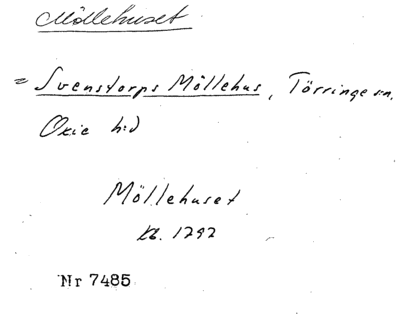 Möllehuset
= Svenstorps Möllehus, Törringe s:n,
Oxie h:d
Möllehuset
kb. 1292
Nr 7485